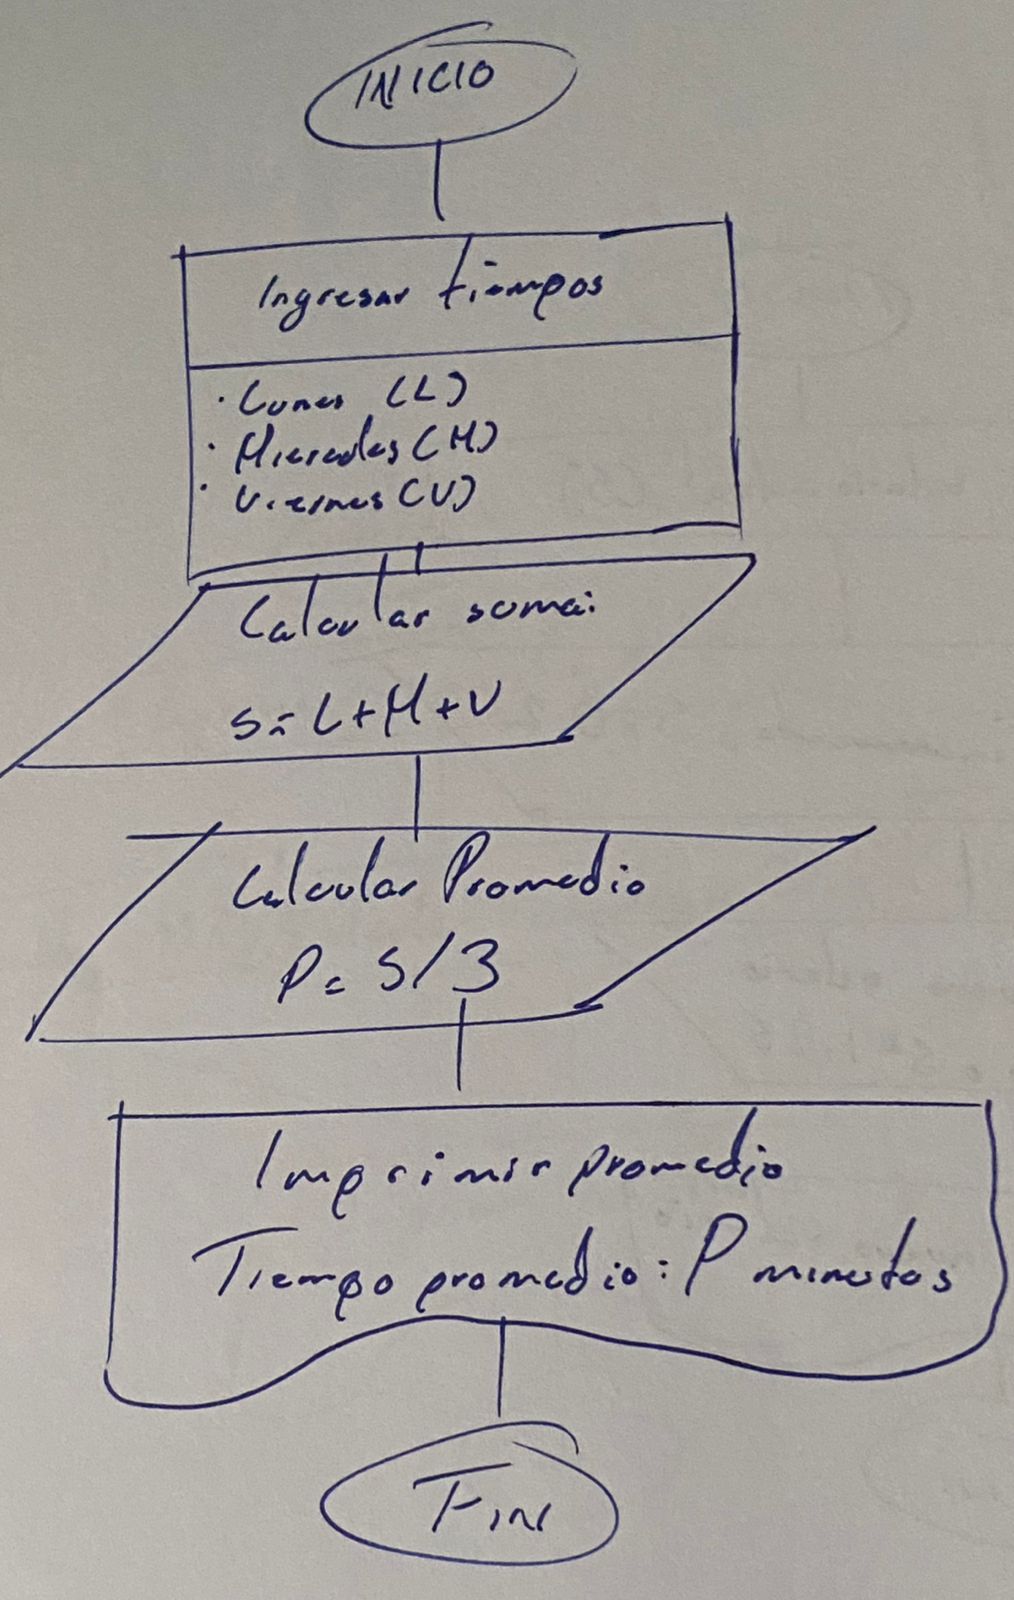 INICIO
Ingresar tiempos
· Lunes (L)
· Miercoles (M)
· Viernes (V)
Calcular suma:
S = L + M + V
Calcular Promedio
P = S / 3
Imprimir promedio
Tiempo promedio: P minutos
FIN